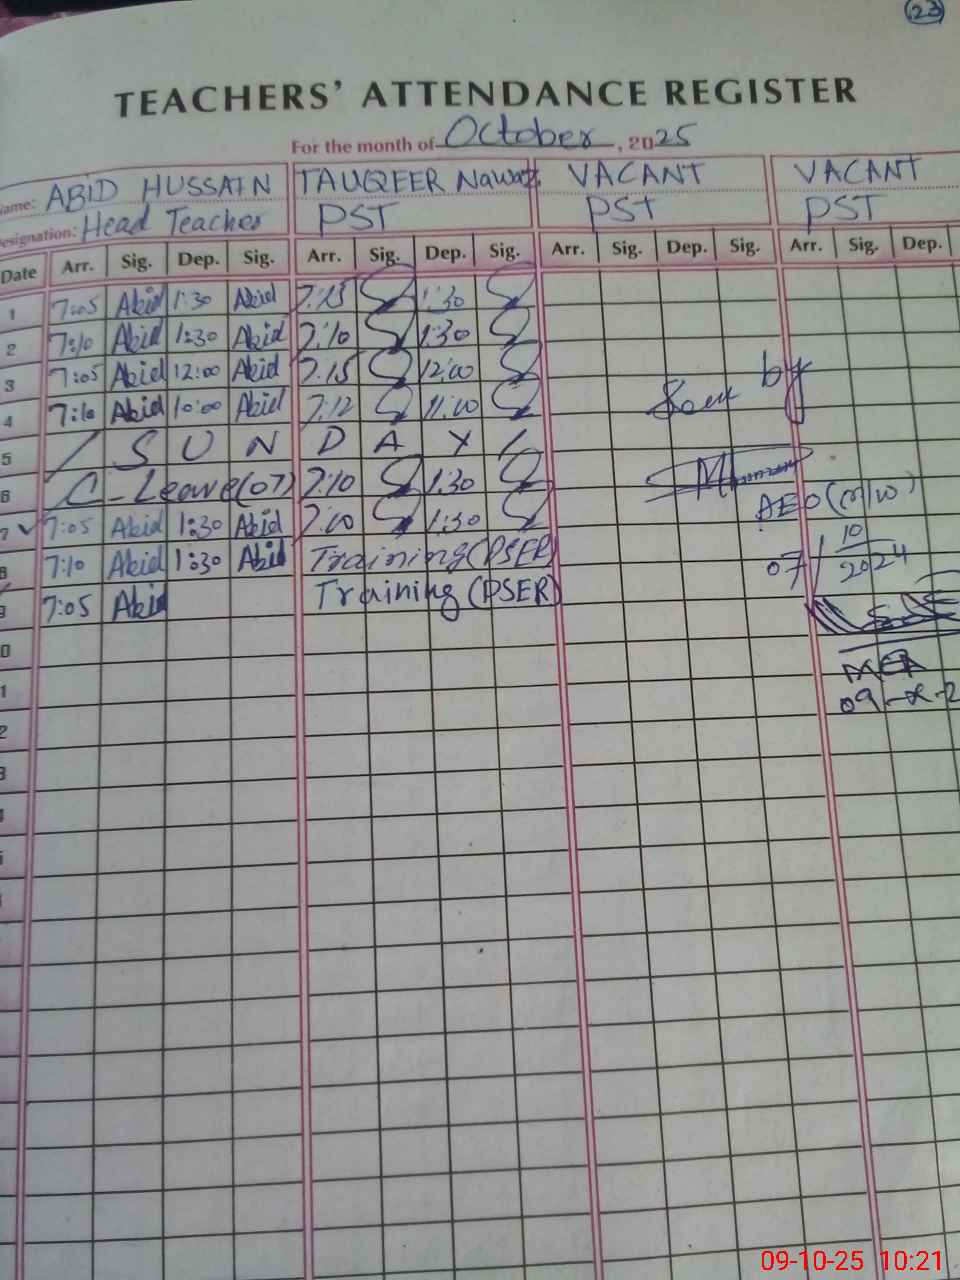 23
TEACHERS' ATTENDANCE REGISTER
For the month of October, 2025
Name: ABID HUSSAIN TAUQEER Nawaz VACANT VACANT
Designation: Head Teacher PST PST PST
Date Arr. Sig. Dep. Sig. Arr. Sig. Dep. Sig. Arr. Sig. Dep. Sig. Arr. Sig. Dep.
1 7:05 Abid 1:30 Abid 7:15 1:30
2 7:10 Abid 1:30 Abid 7:10 1:30
3 7:05 Abid 12:00 Abid 7:15 12:00
4 7:10 Abid 10:00 Abid 7:12 11:00
5 S U N D A Y
6 C-Leave(07) 7:10 1:30
7 7:05 Abid 1:30 Abid 7:00 1:30
8 7:10 Abid 1:30 Abid Training(PSER)
9 7:05 Abid Training (PSER)
0
1
2
3
4
Seen by
AEO(M/W)
07/10/2024
MEA
09
09-10-25 10:21